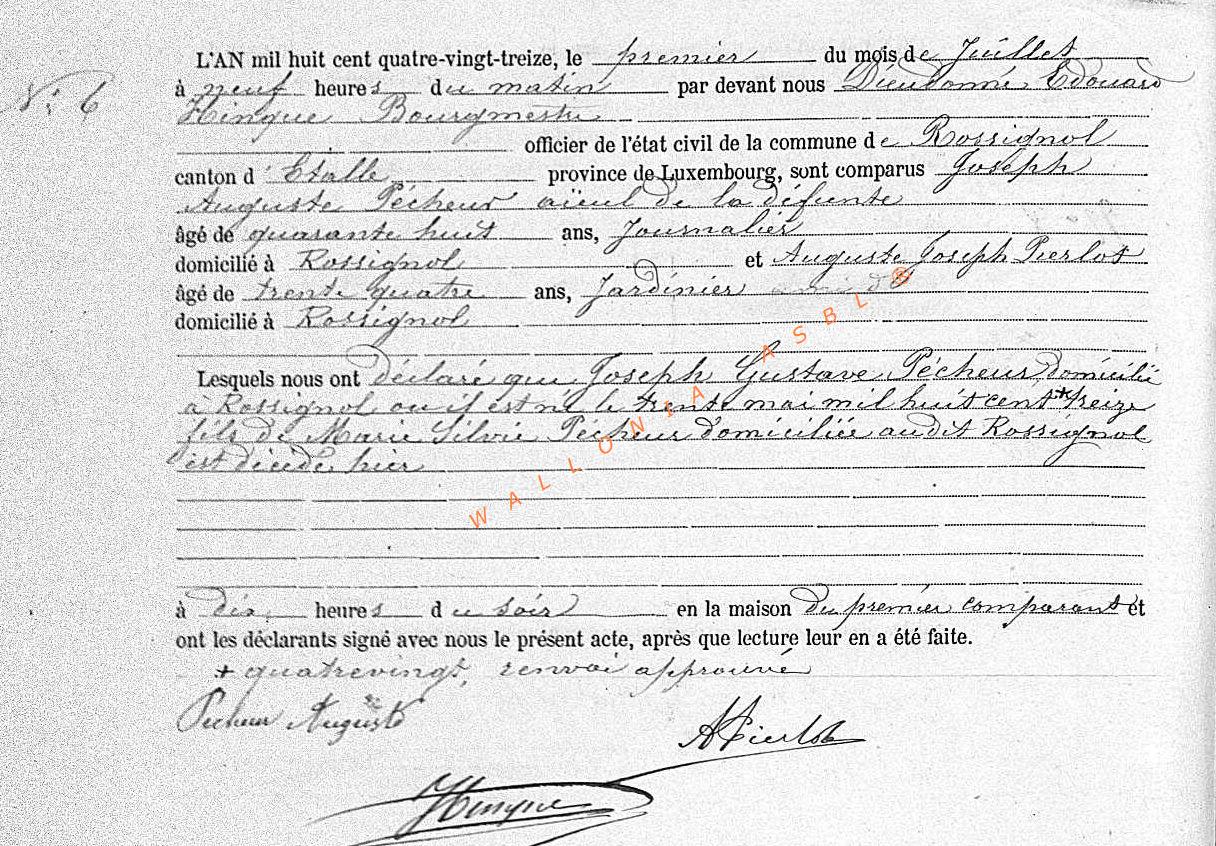 N° 6
L'AN mil huit cent quatre-vingt-treize, le premier du mois de Juillet
à neuf heures du matin par devant nous Dieudonné Edouard
Hinque Bourgmestre
officier de l'état civil de la commune de Rossignol
canton d'Etalle province de Luxembourg, sont comparus Joseph
Auguste Pécheur aïeul de la défunte
âgé de quarante huit ans, Journalier
domicilié à Rossignol et Auguste Joseph Pierlot
âgé de trente quatre ans, Jardinier ami de
domicilié à Rossignol
Lesquels nous ont déclaré que Joseph Gustave Pécheur domicilié
à Rossignol ou il est né le trente mai mil huit cent + treize
fils de Marie Silvie Pecheur domiciliée audit Rossignol
est décédé hier
à dix heures du soir en la maison du premier comparant et
ont les déclarants signé avec nous le présent acte, après que lecture leur en a été faite.
+ quatrevingt, renvoi approuvé
Pecheur Auguste
APierlot
Hinque
WALLONIA ASBL ®